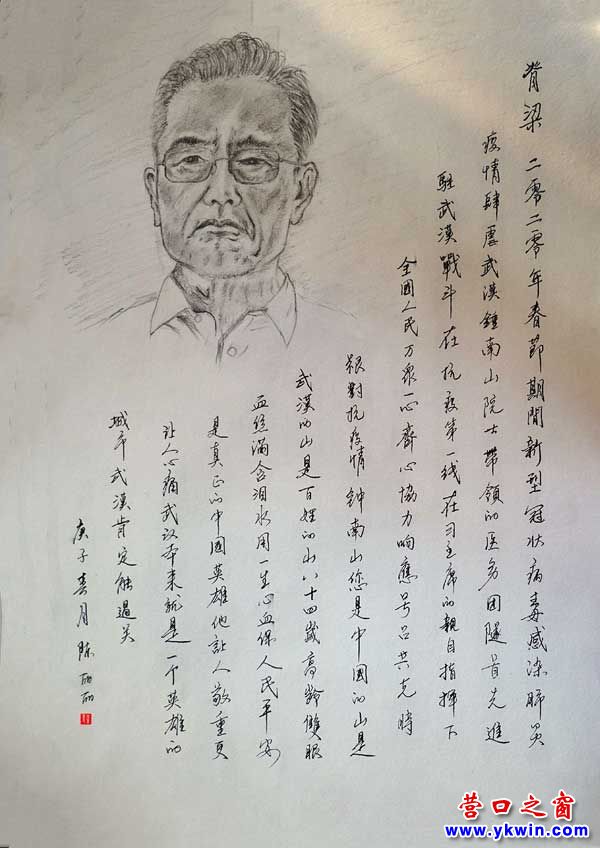 脊梁 二零二零年春節期間新型冠状病毒感染肺炎
疫情肆虐武漢鍾南山院士帶領的医务团隧首先進
駐武漢戰斗在抗疫第一线在习主席的親自指揮下
全國人民万衆一心齊心協力响應号召共克時
艰對抗疫情钟南山您是中國的山是
武漢的山是百姓的山八十四歲高齡雙眼
血丝滿含泪水用一生心血保人民平安
是真正的中國英雄他讓人敬重更
让人心痛武汉本来就是一个英雄的
城市武漢肯定能過关
庚子春月陈丽丽
营口之窗
www.ykwin.com